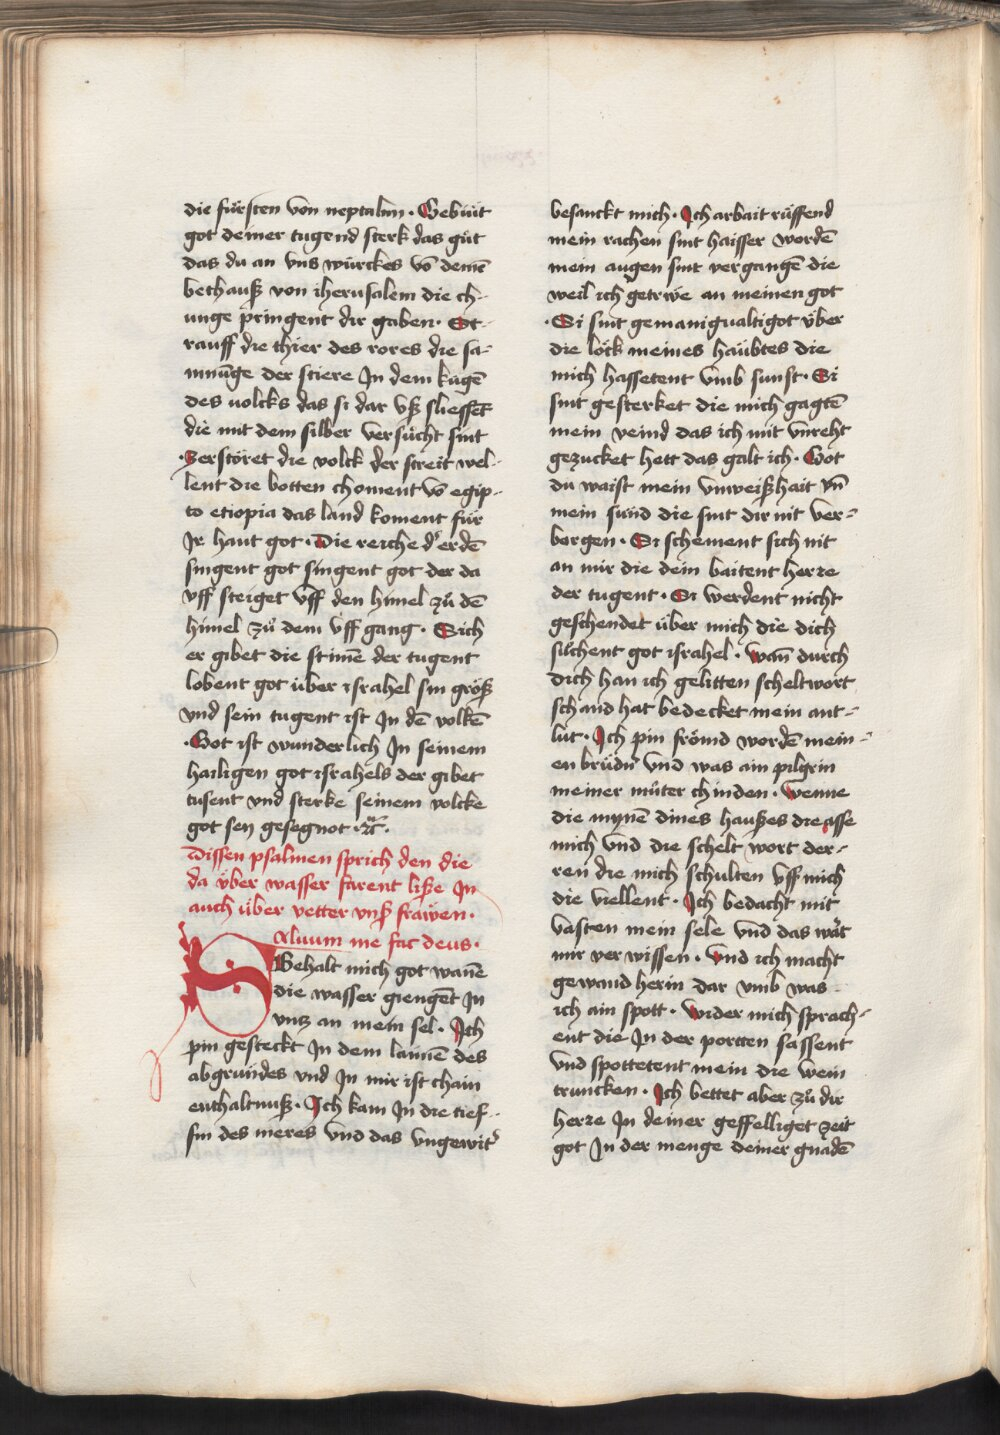 die fürsten von neptalim · Gebiüt
got deiner tugend sterk das güt
das du an vns würckes vō deinē
bethauß von iherusalem die ch-
unge pringent dir gaben · St-
rauff die thier des rores die sa-
mnūge der stiere Jn dem kügē
des uolcks das si dar vß sliessēt
die mit dem silber versücht sint
· Zerstöret die volck der streit wel-
lent die botten choment vō egip-
to etiopia das land koment für
Jr hant got · Die reiche dʾ erdē
singent got singent got der da
vff steiget vff den himel zů dē
himel zů dem vff gang · Sich
er gibet die stimē der tugent
lobent got über israhel sin größ
vnd sein tugent ist Jn dē volkē
· Got ist wunderlich Jn seinem
hailigen got israhels der gibet
tusent vnd sterke seinem volcke
got sey gesegnot · ꝛc̄ ·
Dissen psalmen sprich den die
da über wasser farent liße Jn
auch über vetter vnß fräwen ·
Saluum me fac deus ·
Behalt mich got wanē
die wasser giengēt Jn
vntz an mein sel · Jch
pin gesteckt Jn dem laimē des
abgründes vnd Jn mir ist chain
enthaltnuß · Jch kam Jn die tief-
fin des meres vnd das vngewitʾ
besanckt mich · Jch arbait rüffend
mein rachen sint haisser wordē
mein augen sint vergangē die
weil ich getrwe an meinen got
· Si sint gemanigualtigot über
die löck meines haübtes die
mich hassetent vmb sunst · Si
sint gesterket die mich gagtē
mein veind das ich mit vnreht
gezucket hett das galt ich · Got
du waist mein vnweißhait vn̄
mein sünd die sint dir nit ver-
borgen · Si schement sich nit
an mir die dein baitent herre
der tugent · Si werdent nicht
geschendet über mich die dich
sůchent got israhel · wan̄ durch
dich han ich gelitten scheltwort
schand hat bedecket mein ant-
lüt · Jch pin frömd wordē mein-
en brüdnʾ vnd was ain pilgrin
meiner můter chinden · wenne
die mynē dines haußes die asse
mich vnd die schelt wort der-
ren die mich schulten vff mich
die viellent · Jch bedacht mit
vasten mein sele vnd das wart
mir ver wissen · vnd ich macht
gewand herin dar vmb was
ich ain spott · wider mich sprach-
ent die Jn der portten sassent
vnd spottetent mein die wein
truncken · Jch bettet aber zů dir
herre Jn deiner geffelliget zeit
got Jn der menge deiner gnadē